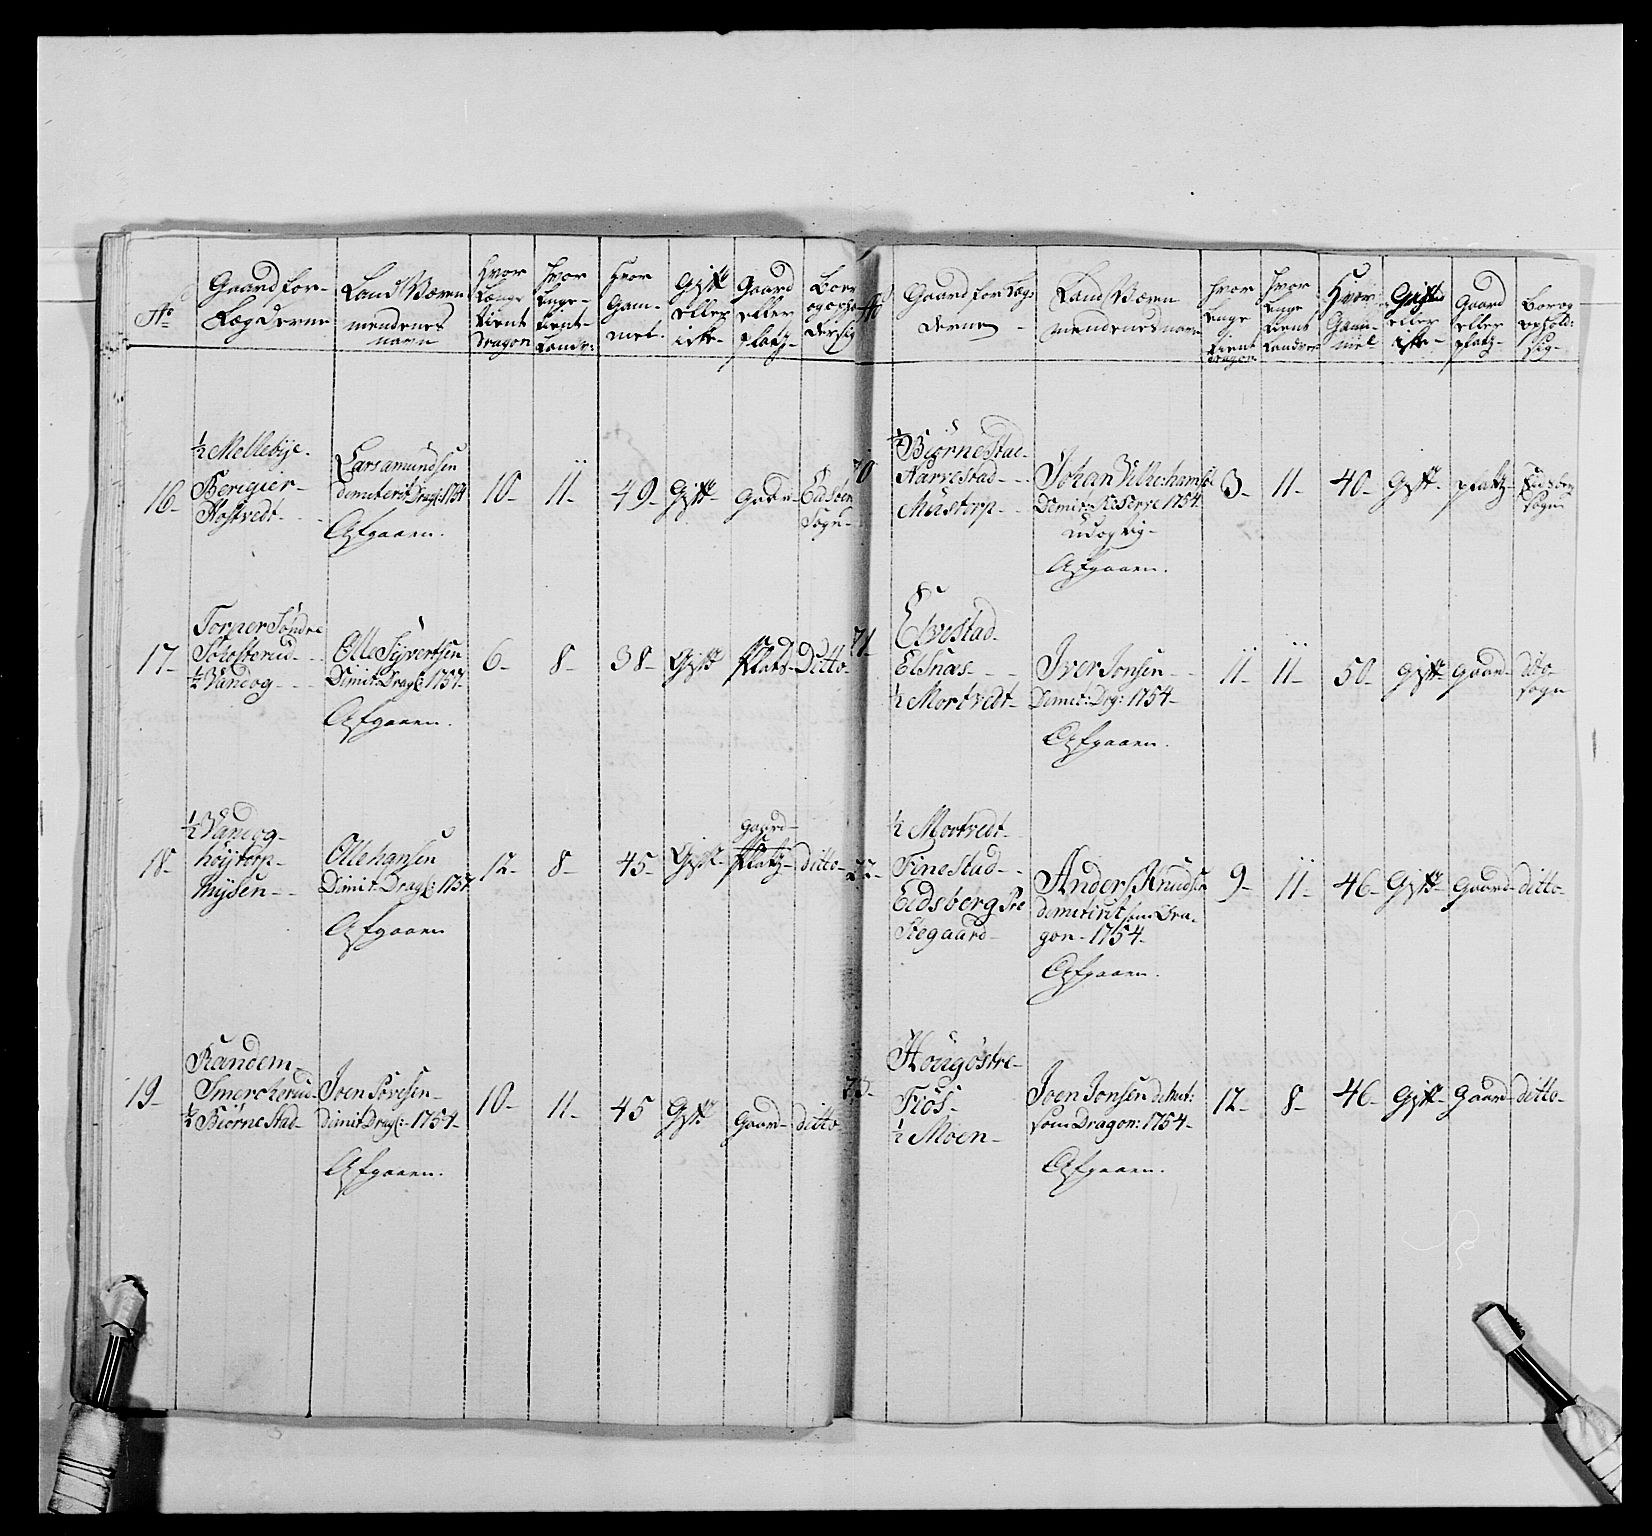 No
Gaard for-
Læg Derne
Land Værn
mendenes
navn
Hvor
Længe
tient
Dragon
Hvor
Lenge-
tient-
Landv:
Hvor
Gam-
mel-
Gift
eller
ikke-
Gaard
eller
platz-
Boer
og opho
der sig
16-
½ Mellebye-
Berigier-
Hostvedt-
Lars amundsen
demiterit Drag: 1754
Afgaaen.
10-
11-
49-
Gift-
Gaard-
Eidsberg
Sogn-
17-
Torper Søndre
Slosterud-
½ Vandog-
Olle Syvertsen
Dimit: Drag: 1757-
Afgaaen.
6-
8-
38-
Gift
Plads-
Ditto-
18-
½ Vandog-
høytorp-
Mysen-
Olle hansen
Dimit: Drag: 1757.
Afgaaen
12-
8-
45-
Gift-
gaard-
Platz-
ditto-
19-
Randem-
Smercherud-
½ Biørnestad-
Joen Sørsen-
Dimit Drag: 1754-
Afgaaen.
10-
11-
45
Gift
Gaard-
ditto-
No
Gaard for Læg-
derne-
Land Værn
mendenes navn
Hvor
Lenge
tient
Dragon
Hvor
Lenge
tient
Landv:
Hvor
Gam-
mel
Gift
eller
ikke-
Gaard
eller
platz-
Boer og
ophold:
sig-
70
½ Biørnestad-
Harvestad-
Mustorp-
Johan
Demit: Reserve 1754
udygtig-
Afgaaen.
3-
11-
40-
Gift-
platz-
Eidsberg
Sogn
71-
Elvestad-
Elsnæs-
½ Mortvedt-
Iver Jonsen-
Demit: Drg: 1754-
Afgaaen.
11-
11-
50-
gift-
gaard-
dito-
sogn
72-
½ Mortvedt-
Finestad-
Eidsberg Pre
stegaard-
Anders Knudsen
demiterit som Dra-
gon- 1754-
Afgaaen.
9-
11-
46-
Gift-
Gaard-
ditto-
73-
Hougøstre-
Fiøs-
½ Moen-
Joen Jonsen demit:
som Dragon: 1754-
Afgaaen.
12-
8-
46-
Gift-
Gaard-
ditto-